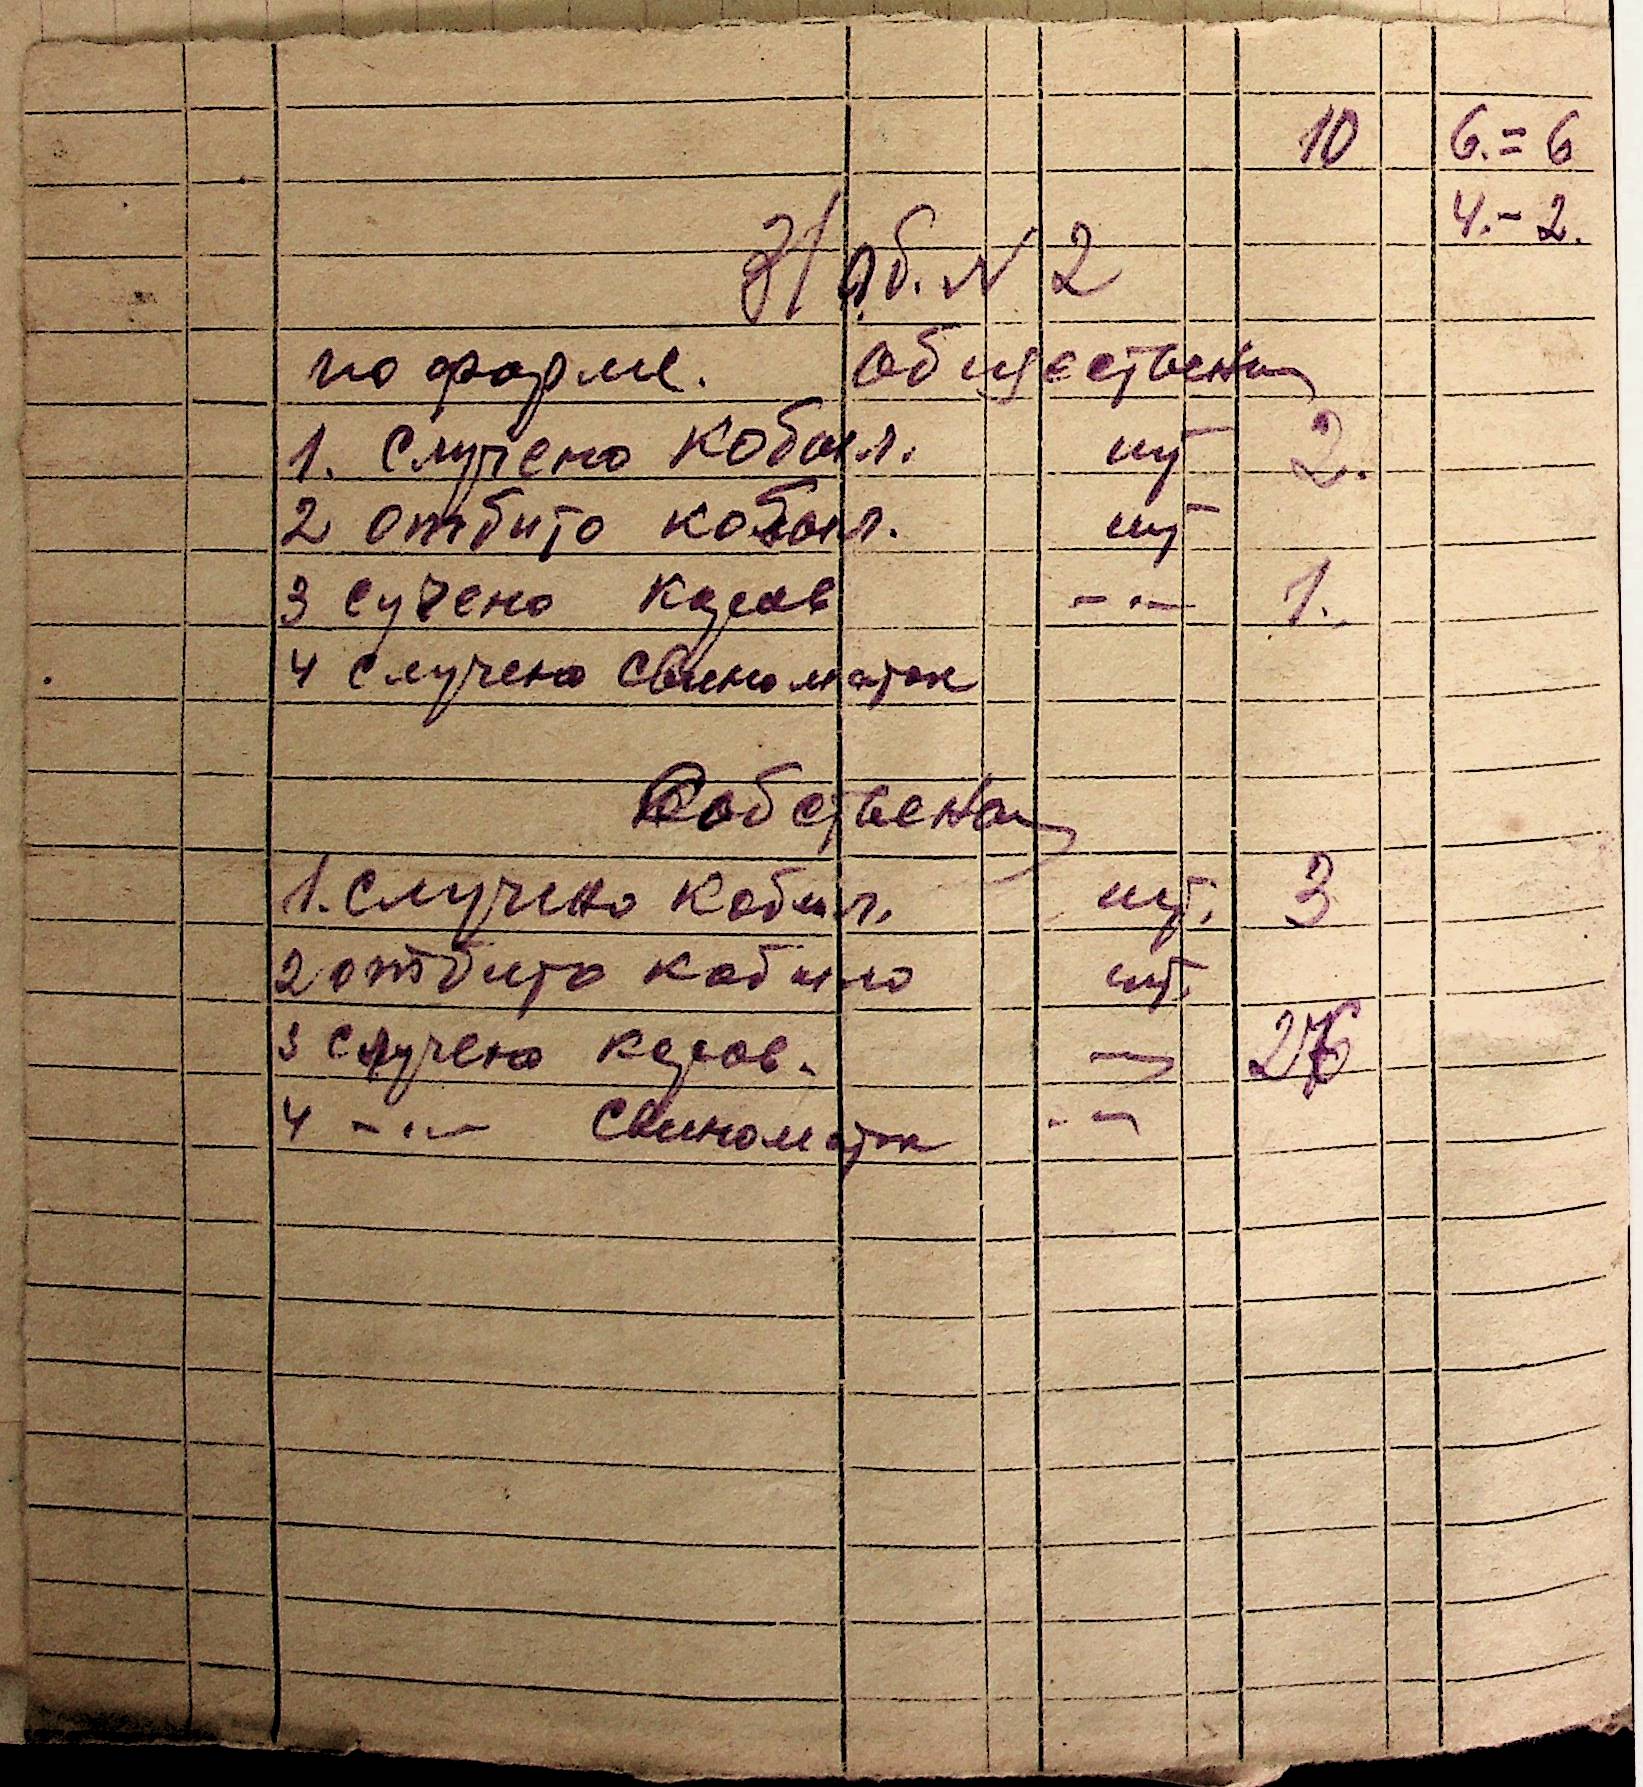 10 6. = 6
4. - 2.
об. № 2
по форме. обществени
1. Случено кобыл. шт 2.
2 отбито кобыл. шт
3 сучено коров -·- 1.
4 случено свиноматок
Собствена
1. Случено кобыл. шт. 3
2 отбито кобыло шт.
3 случено коров. —
4 -·- Свиноматок -·-